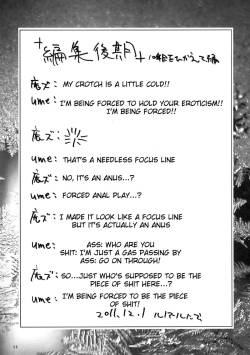 編集後期
魔ズ: MY CROTCH IS A LITTLE COLD!!
ume: I'M BEING FORCED TO HOLD YOUR EROTICISM!!
I'M BEING FORCED!!
魔ズ:
ume: THAT'S A NEEDLESS FOCUS LINE
魔ズ: NO, IT'S AN ANUS...?
ume: FORCED ANAL PLAY...?
魔ズ: I MADE IT LOOK LIKE A FOCUS LINE
BUT IT'S ACTUALLY AN ANUS
ume: ASS: WHO ARE YOU
SHIT: I'M JUST A GAS PASSING BY
ASS: GO ON THROUGH!
魔ズ: SO...JUST WHO'S SUPPOSED TO BE THE
PIECE OF SHIT HERE...?
ume: I'M BEING FORCED TO BE THE PIECE
OF SHIT!
2011.12.1